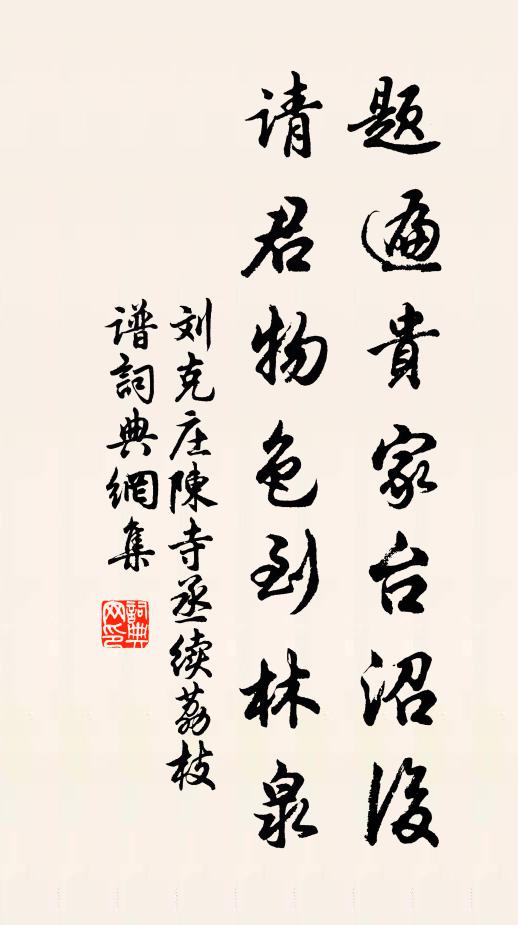 题遍貴家台沼後
请君物色到林泉
刘克庄陳寺丞续荔枝
谱詞典網集
詞典网印